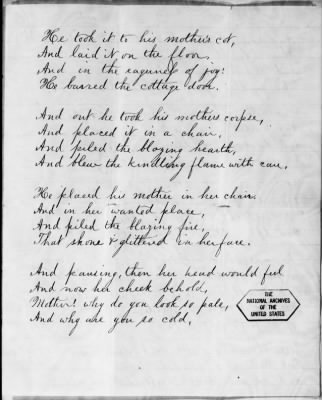 He took it to his mother's cot,
And laid it on the floor,
And in the eagerness of joy!
He barred the cottage door.

And out he took his mothers corpse,
And placed it in a chair,
And piled the blazing hearth,
And blew the kindling flame with care.

He placed his mother in her chair.
And in her wanted place,
And piled the blazing fire,
That shone & glittered in her face.

And pausing, then her head would feel
And now her cheek behold,
Mother! why do you look so pale,
And why are you so cold,

THE
NATIONAL ARCHIVES
OF THE
UNITED STATES